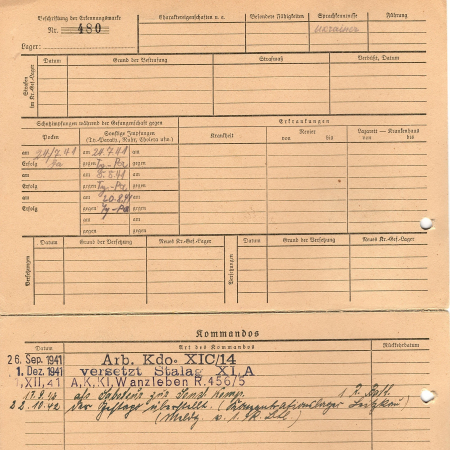 Beschriftung der Erkennungsmarke
Nr. 480
Lager:
Charaktereigenschaften u. a.
Besondere Fähigkeiten
Sprachkenntnisse
Führung
Ukrainer
Strafen im Kr.-Gef.-Lager
Datum Grund der Bestrafung Strafmaß Verbüßt, Datum
Schutzimpfungen während der Gefangenschaft gegen
Erkrankungen
Pocken
Sonstige Impfungen
(Ty.-Paraty., Ruhr, Cholera usw.)
Krankheit
Revier
von bis
Lazarett — Krankenhaus
von bis
am 24/7.41 am 24.7.41 am
Erfolg gegen Ty-Pa gegen
am am 8.8.41 am
Erfolg gegen Ty-Pa gegen
am am 20.8.41 am
Erfolg gegen Ty-Pa gegen
am am
gegen gegen
Versetzungen
Datum Grund der Versetzung Neues Kr.-Gef.-Lager
Versetzungen
Datum Grund der Versetzung Neues Kr.-Gef.-Lager
Kommandos
Datum Art des Kommandos Rückkehrdatum
26. Sep. 1941 Arb. Kdo. XIC/14
1. Dez. 1941 versetzt Stalag XI A
XII. 41 A.K.XI, Wanzleben R. 456/5
17.9.42 als
22.10.42 der Gestapo überstellt. (Konzentrationslager